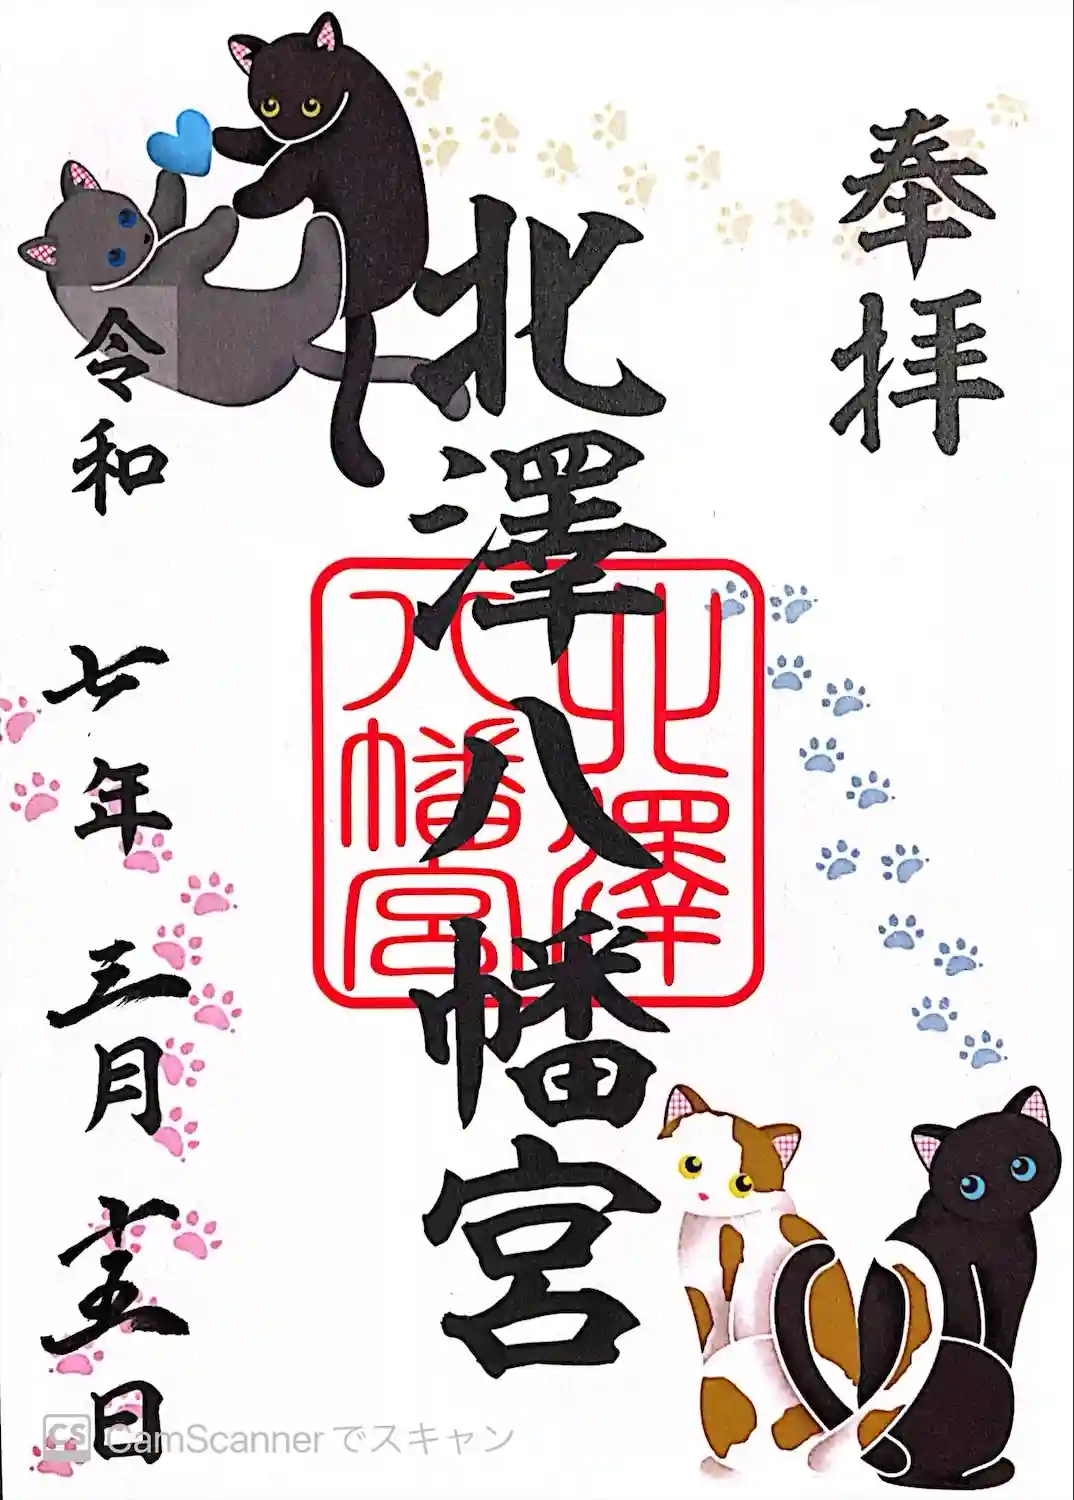 奉拝
北澤八幡宮
北澤
八幡宮
令和七年三月十五日
CS CamScannerでスキャン